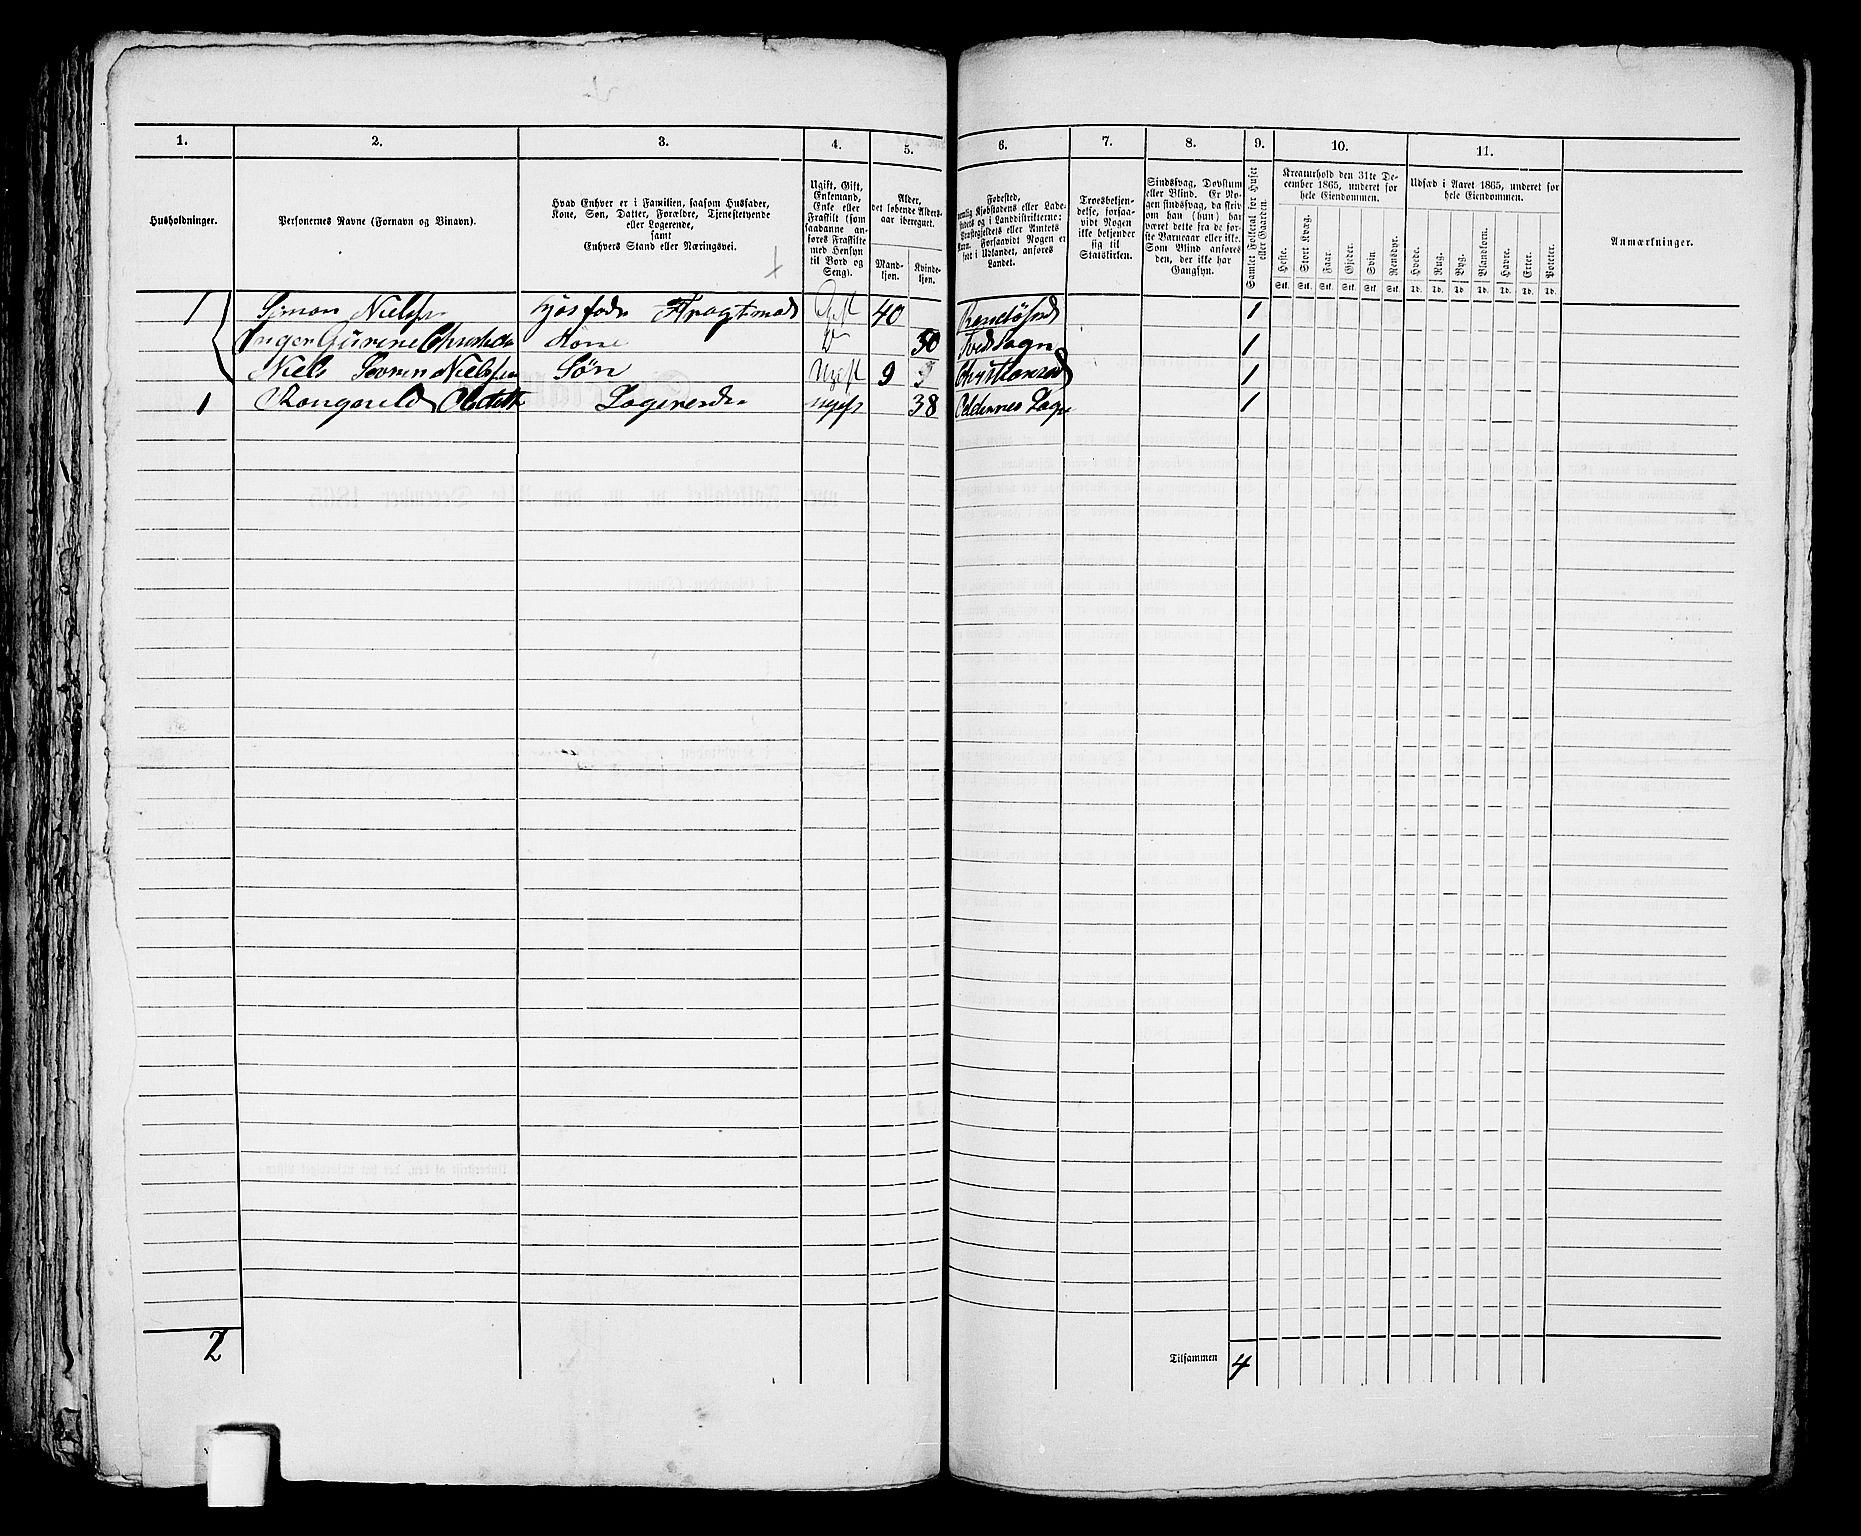 1. 2. 3. 4. 5. 6. 7. 8. 9. 10. 11.
Husholdninger.
Personernes Navne (Fornavn og Binavn).
Hvad Enhver er i Familien, saasom Husfader,
Kone, Søn, Datter, Forældre, Tjenestetyende
eller Logerende,
samt
Enhvers Stand eller Næringsvei.
Ugift, Gift,
Enkemand,
Enke eller
Fraskilt (som
saadanne an-
føres Fraskilte
med Hensyn
til Bord og
Seng).
Alder,
det løbende Alders-
aar iberegnet.
Mand-
kjøn.
Kvinde-
kjøn.
Fødested,
Kjøbstadens eller Lade-
og i Landdistrikterne:
eller Amtets
Navn. Forsaavidt Nogen er
født i Udlandet, anføres
Landet.
Troesbekjen-
delse, forsaa-
vidt Nogen
ikke bekjender
sig til
Statskirken.
Sindssvag, Døvstum
eller Blind. Er No-
gen sindssvag, da skriv
om han (hun) har
været dette fra de før-
ste Barneaar eller ikke.
Som Blind anføres
den, der ikke har
Gangsyn.
Samlet Folketal for Huset
eller Gaarden.
Kreaturhold den 31te De-
cember 1865, underet for
hele Eiendommen.
Heste.
Stort Kvæg.
Faar.
Gjeder.
Svin
Rensdyr.
Stk. Stk. Stk. Stk. Stk. Stk.
Udsæd i Aaret 1865, underet for
hele Eiendommen.
Hvede.
Rug.
Byg.
Blandkorn.
Havre.
Erter.
Poteter.
Td. Td. Td. Td. Td. Td. Td.
Anmærkninger.
1 Simon Nielsen 40 1
Inger Gurine Kone 1
Niels Søren Nielsen Søn Ugift 9 1
1 Logerende Ugift 38 Oddernes Sogn 1
2
Tilsammen 4